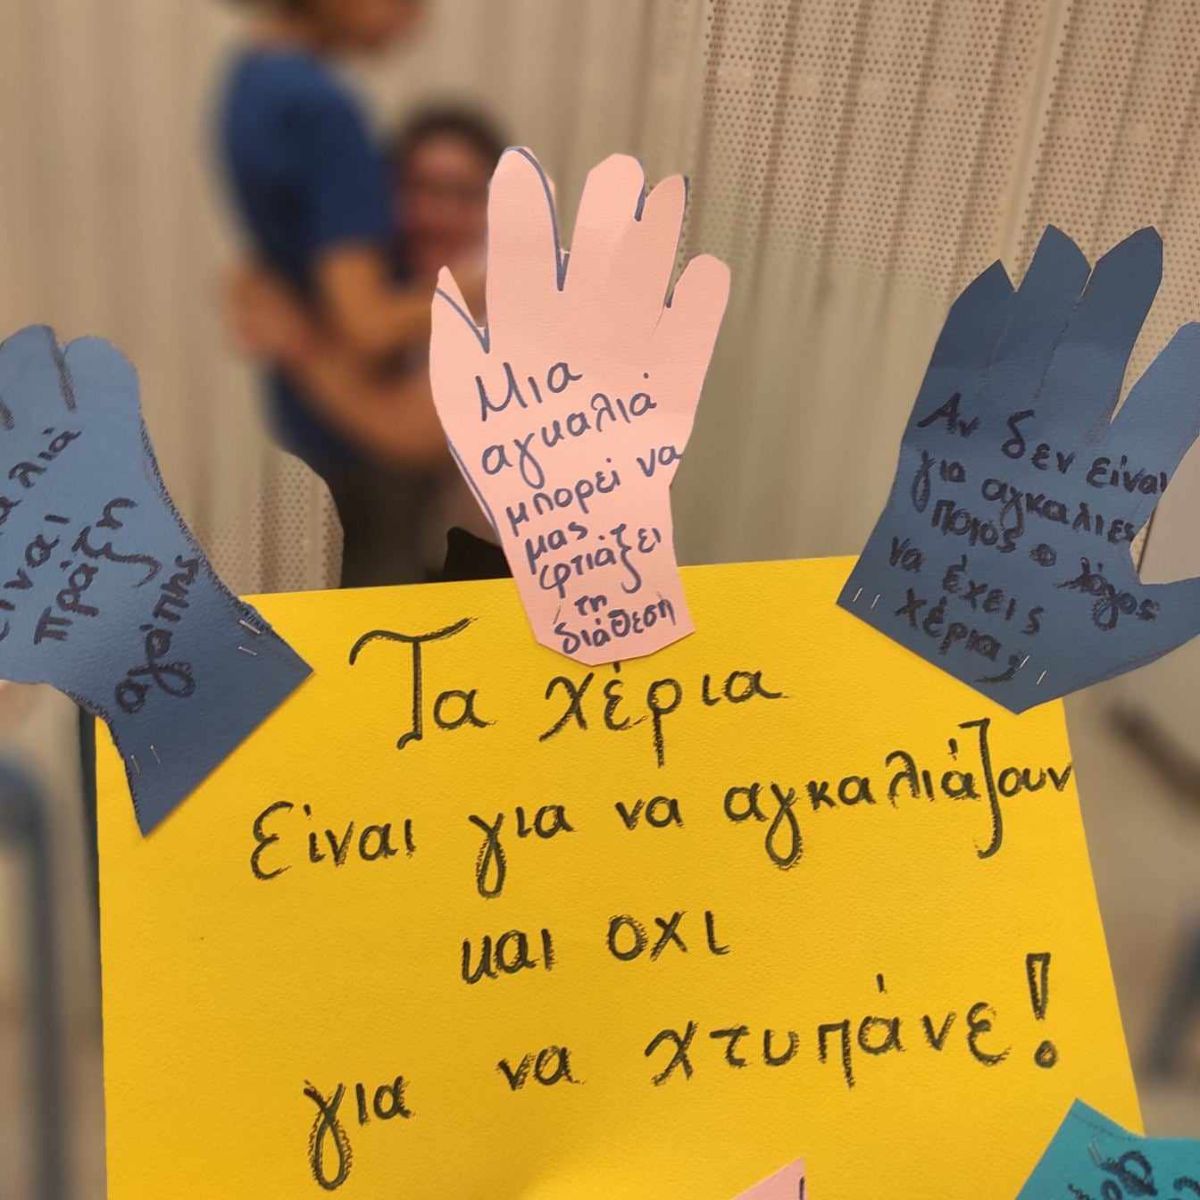 είναι
πράξη
αγάπης
Μια
αγκαλιά
μπορεί να
μας
φτιάξει
τη
διάθεση
Αν δεν είναι
για αγκαλιές
ποιος ο λόγος
να έχεις
χέρια;
Τα χέρια
Είναι για να αγκαλιάζουν
και οχι
για να χτυπάνε!